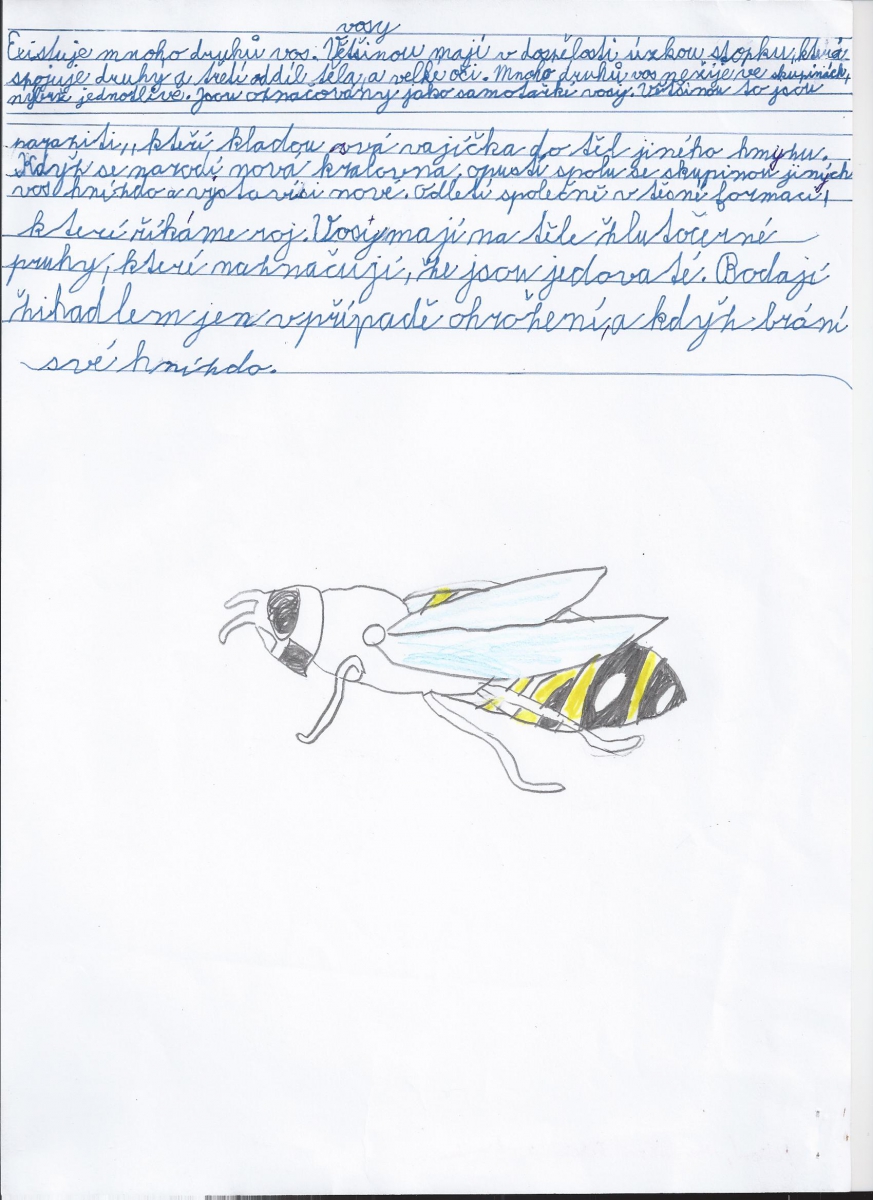 vosy
Existuje mnoho druhů vos. Většinou mají v dospělosti úzkou stopku, která
spojuje druhý a třetí oddíl těla, a velké oči. Mnoho druhů vos nežije ve skupinách,
nýbrž jednotlivě. Jsou označovány jako samotářké vosy. Většinou to jsou
paraziti,, kteří kladou svá vajíčka do těl jiného hmyzu.
Když se narodí nová kralovna, opustí spolu se skupinou jiných
vos hnízdo a vystaví si nové. Odletí společně v těsné formaci,
které říkáme roj. Vosy mají na těle žlutočerné
pruhy, které naznačují, že jsou jedovaté. Bodají
žihadlem jen v případě ohrožení, a když brání
své hnízdo.